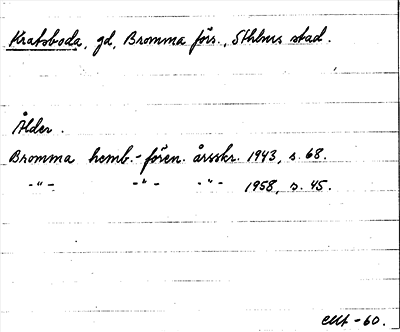 Kratsboda, gd, Bromma förs., Sthlms stad.
Ålder.
Bromma hemb.-fören. årsskr. 1943, s. 68.
-"- -"- -"- 1958, s. 45.
-60.